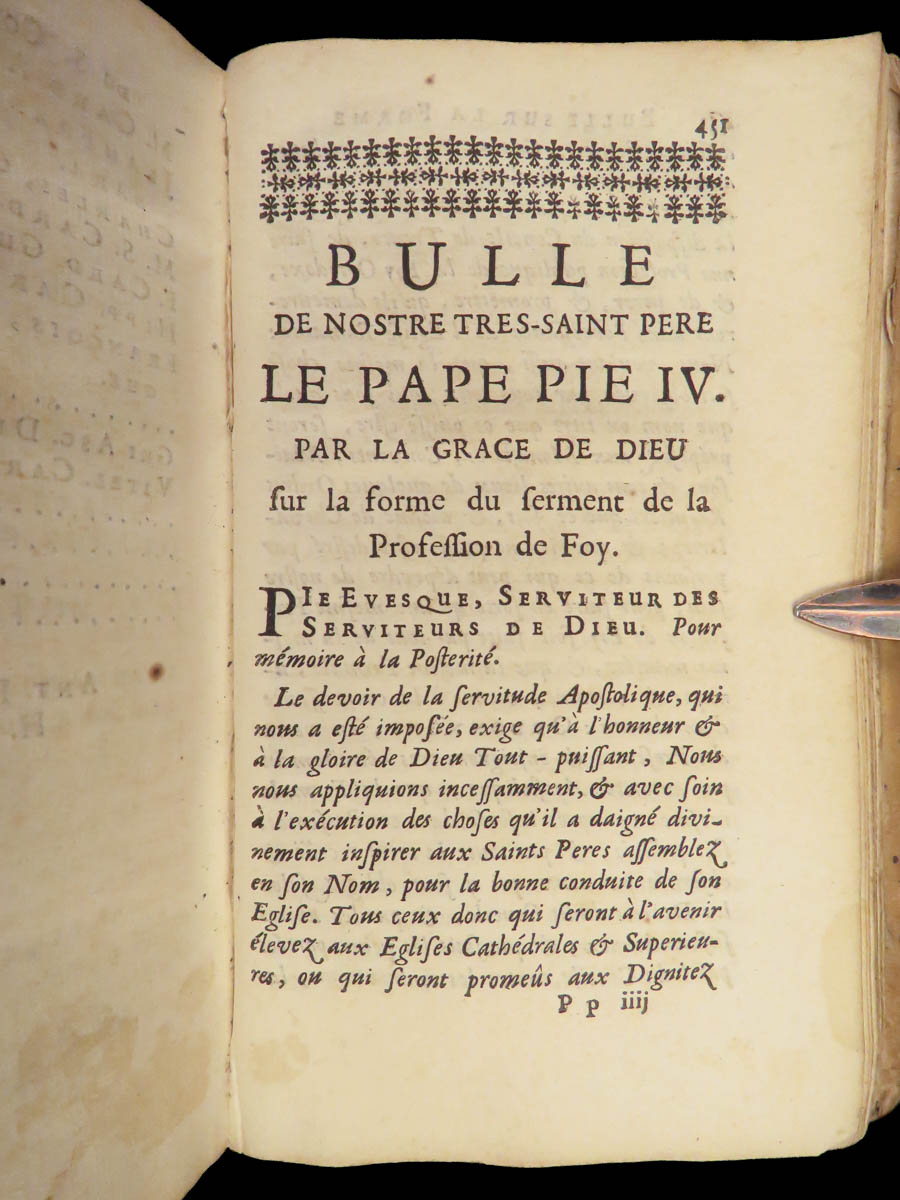 451
BULLE
DE NOSTRE TRES-SAINT PERE
LE PAPE PIE IV.
PAR LA GRACE DE DIEU
ſur la forme du ſerment de la
Profeſſion de Foy.
PIE EVESQUE, SERVITEUR DES
SERVITEURS DE DIEU. Pour
mémoire à la Poſterité.
Le devoir de la ſervitude Apoſtolique, qui
nous a eſté impoſée, exige qu'à l'honneur &
à la gloire de Dieu Tout-puiſſant, Nous
nous appliquions inceſſamment, & avec ſoin
à l'exécution des choſes qu'il a daigné divi-
nement inſpirer aux Saints Peres aſſemblez
en ſon Nom, pour la bonne conduite de ſon
Egliſe. Tous ceux donc qui ſeront à l'avenir
élevez aux Egliſes Cathédrales & Superieu-
res, ou qui ſeront promeûs aux Dignitez
Pp iiij